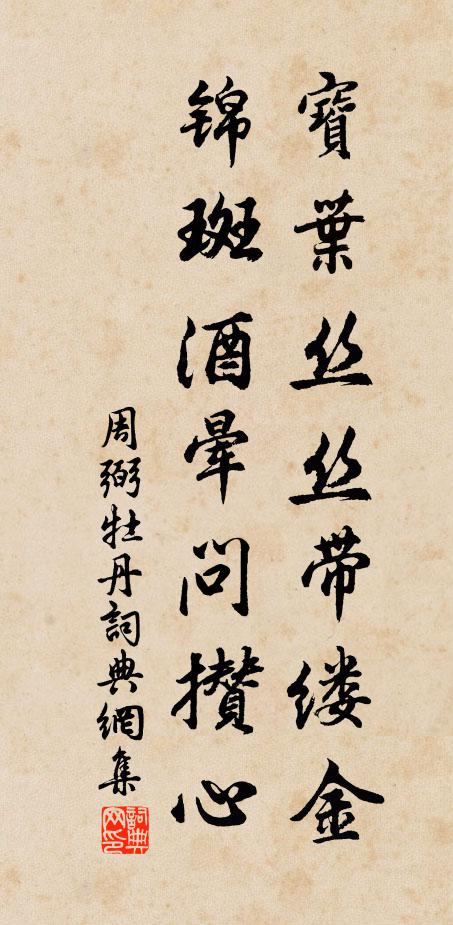 寶葉丝丝带缕金
锦斑酒晕问攅心
周弼牡丹詞典網集
詞典网印